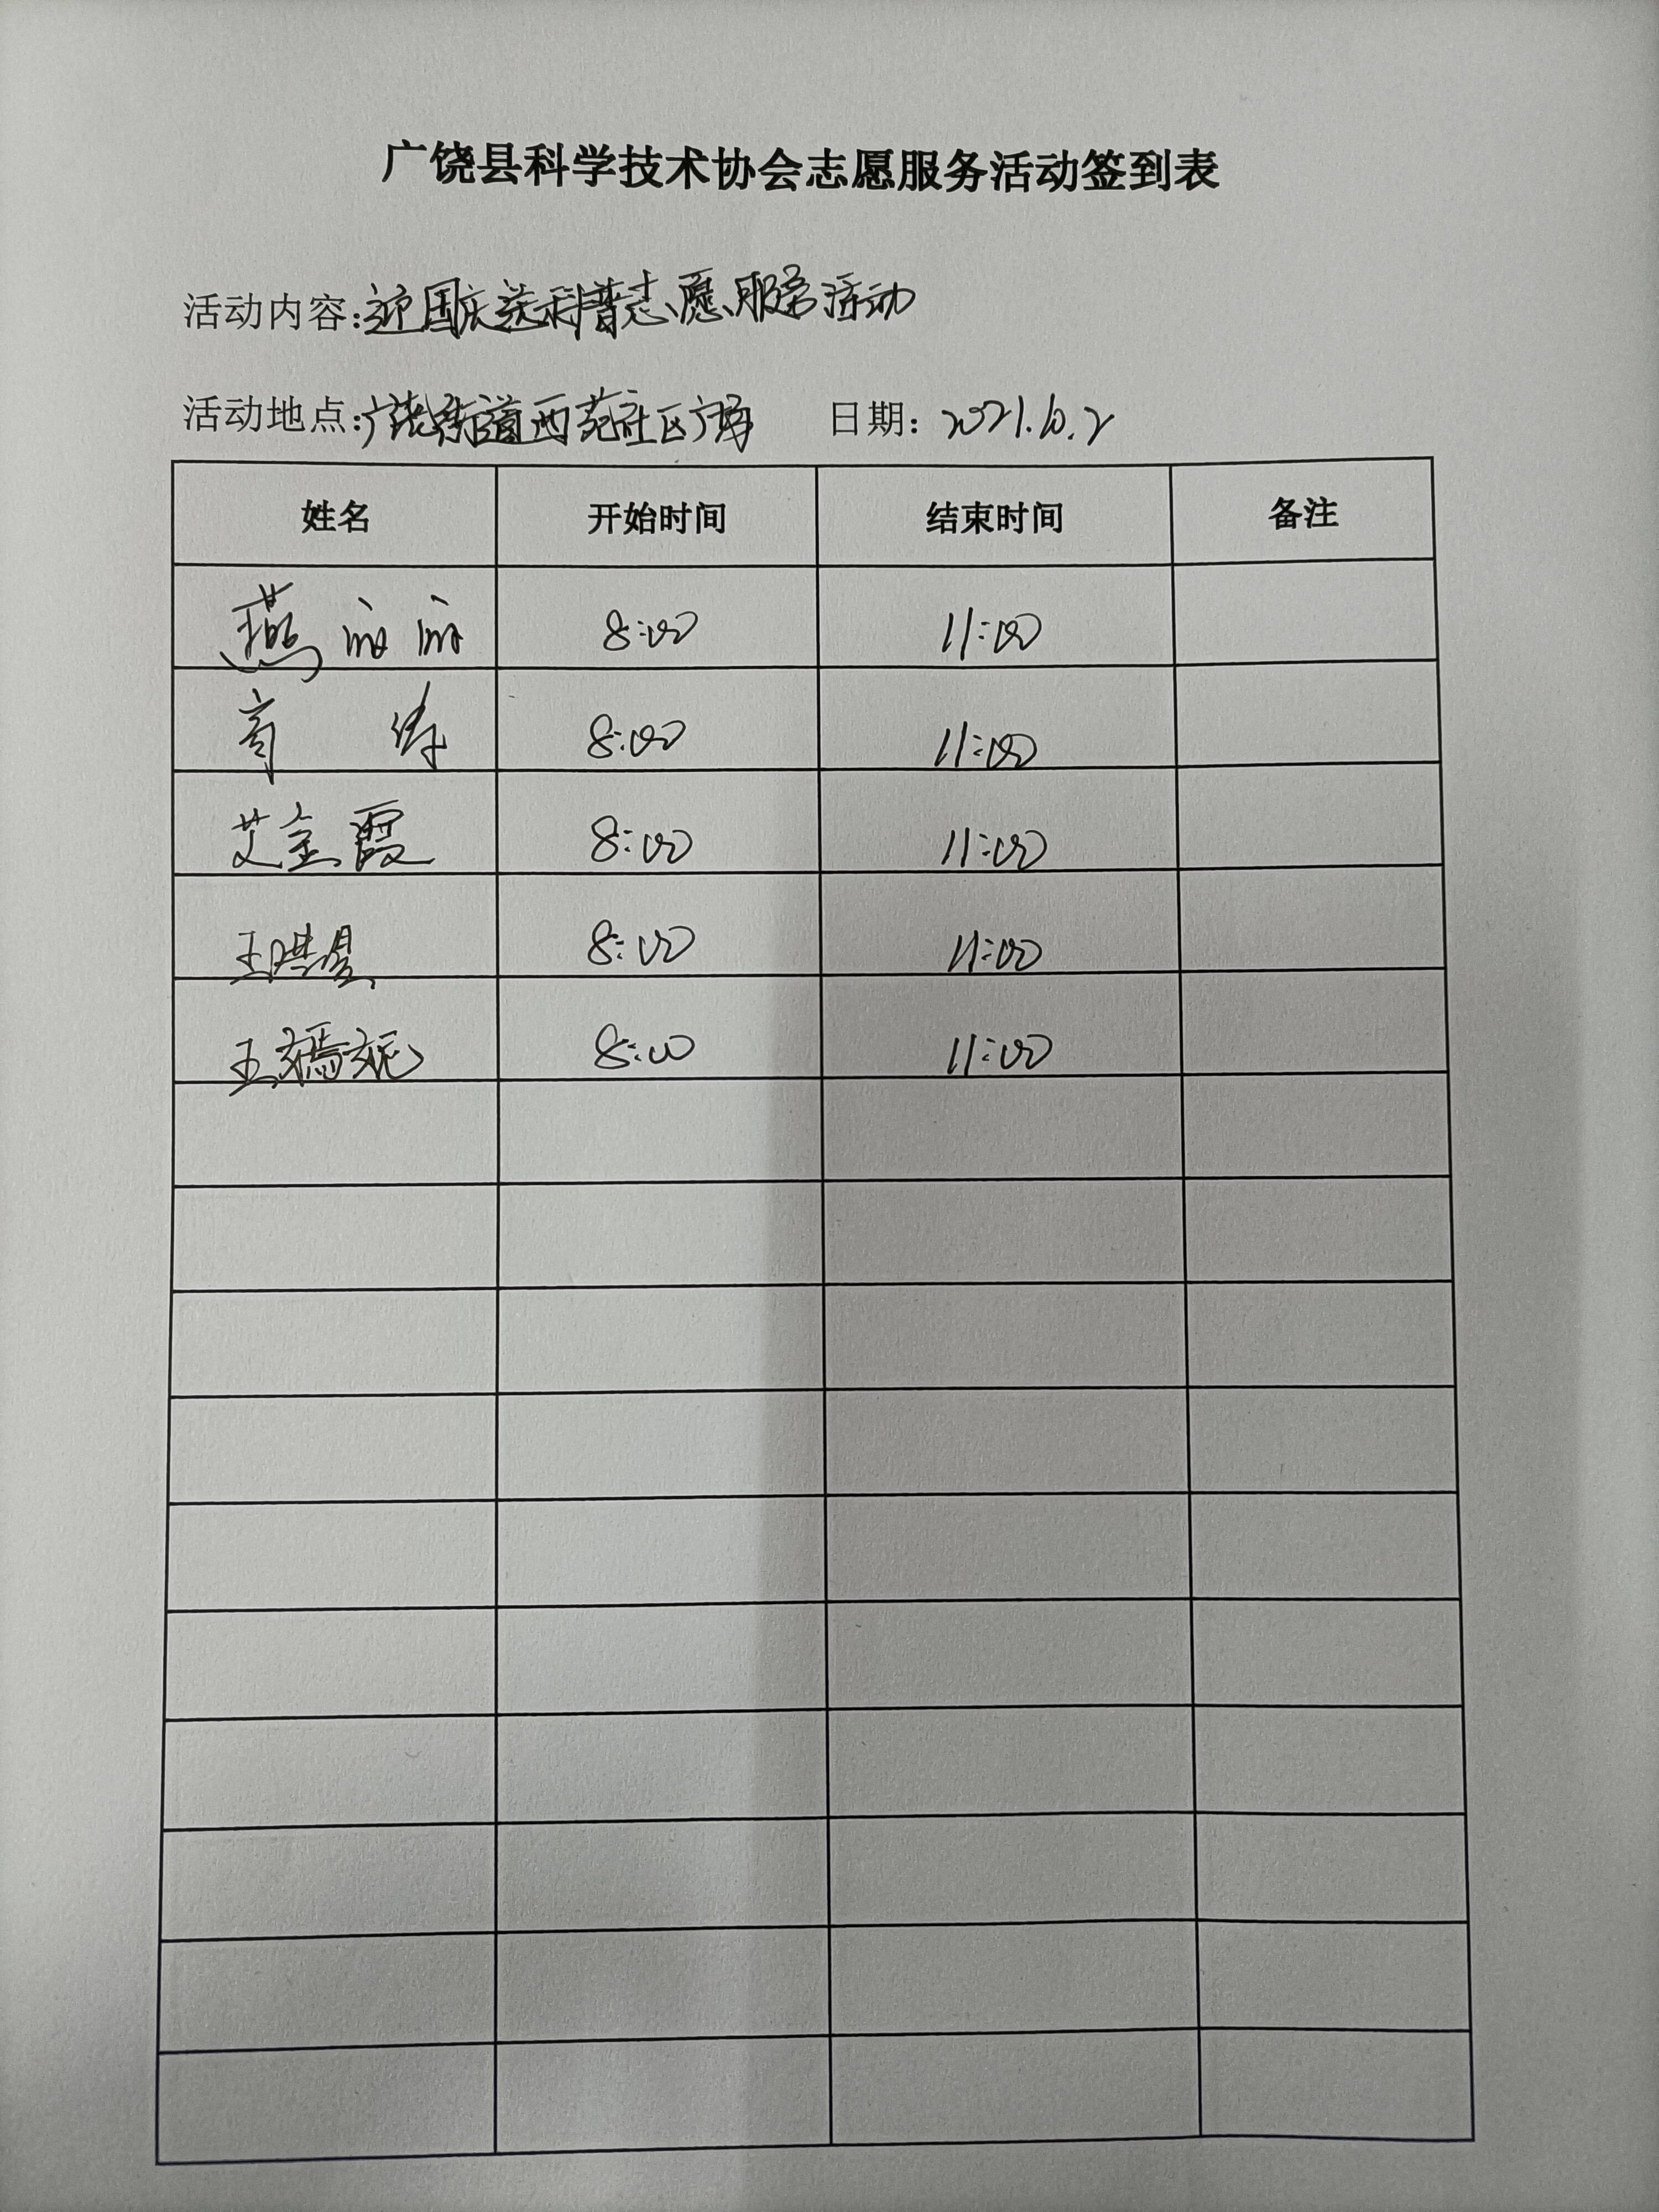 广饶县科学技术协会志愿服务活动签到表
活动内容:迎国庆送科普志愿服务活动
活动地点:广饶街道西苑社区广场 日期:2021.10.2
姓名 开始时间 结束时间 备注
燕丽丽 8:00 11:00
8:00 11:00
艾金霞 8:00 11:00
王洪星 8:00 11:00
王嫣妮 8:00 11:00